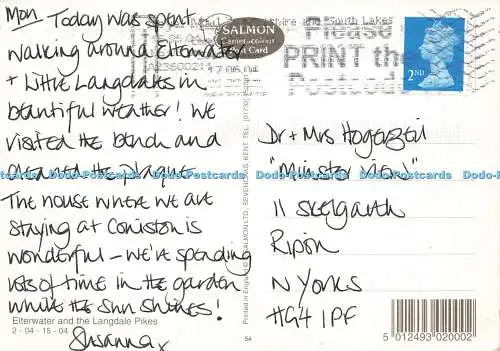 Mon Today was spent
walking around Elterwater
+ Little Langdales in
beautiful weather! We
visited the bench and
cleaned the plaque
The house where we are
staying at Coniston is
wonderful – we're spending
lots of time in the garden
while the sun shines!
Susanna x
Elterwater and the Langdale Pikes
2 - 04 - 15 - 04
SALMON
Cameracolour
Post Card
and South Lakes
17-06-04
Please
PRINT the
Postcode
2ND
Dr + Mrs Hogerzeil
"Minster View"
11 Skelgarth
Ripon
N Yorks
HG4 1PF
54
5 012493 020002
Dodo-Postcards Dodo-Postcards Dodo-Postcards Dodo-Postcards Dodo-Postcards